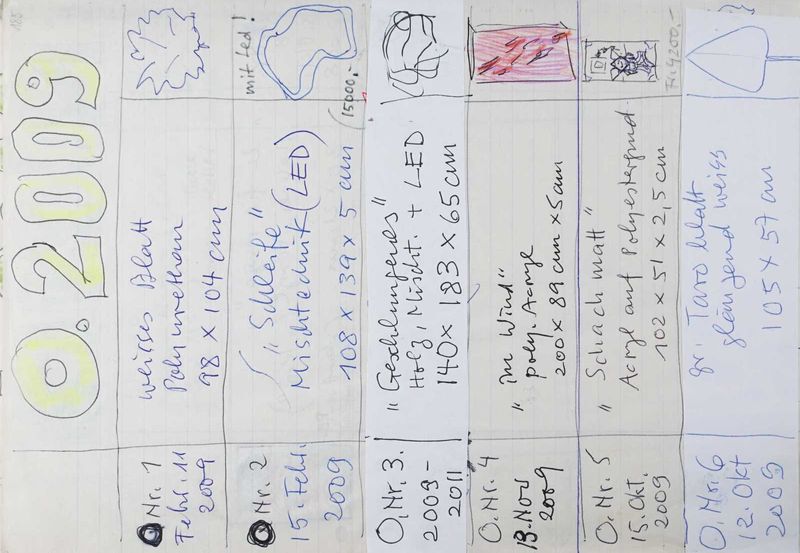 188
O. 2009
O Nr. 1
Febr. 11
2009
weisses Blatt
Polyurethan
98 x 104 cm
O Nr. 2
15. Febr.
2009
mit Led!
"Schleife"
Mischtechnik (LED)
108 x 139 x 5 cm
(15000,-
O, Nr. 3.
2009-
2011
"Geschlungenes"
Holz, Mischt. + LED
140 x 183 x 65 cm
O. Nr. 4
13. Nov
2009
"im Wind"
poly. Acryl
200 x 89 cm x 5 cm
O. Nr. 5
15. Okt.
2009
"Schach matt"
Acryl auf Polyestergrund
102 x 51 x 2,5 cm
Fr. 4200,-
O. Nr. 6
12. Okt
2009
gr. Taro blatt
glänzend weiss
105 x 57 cm